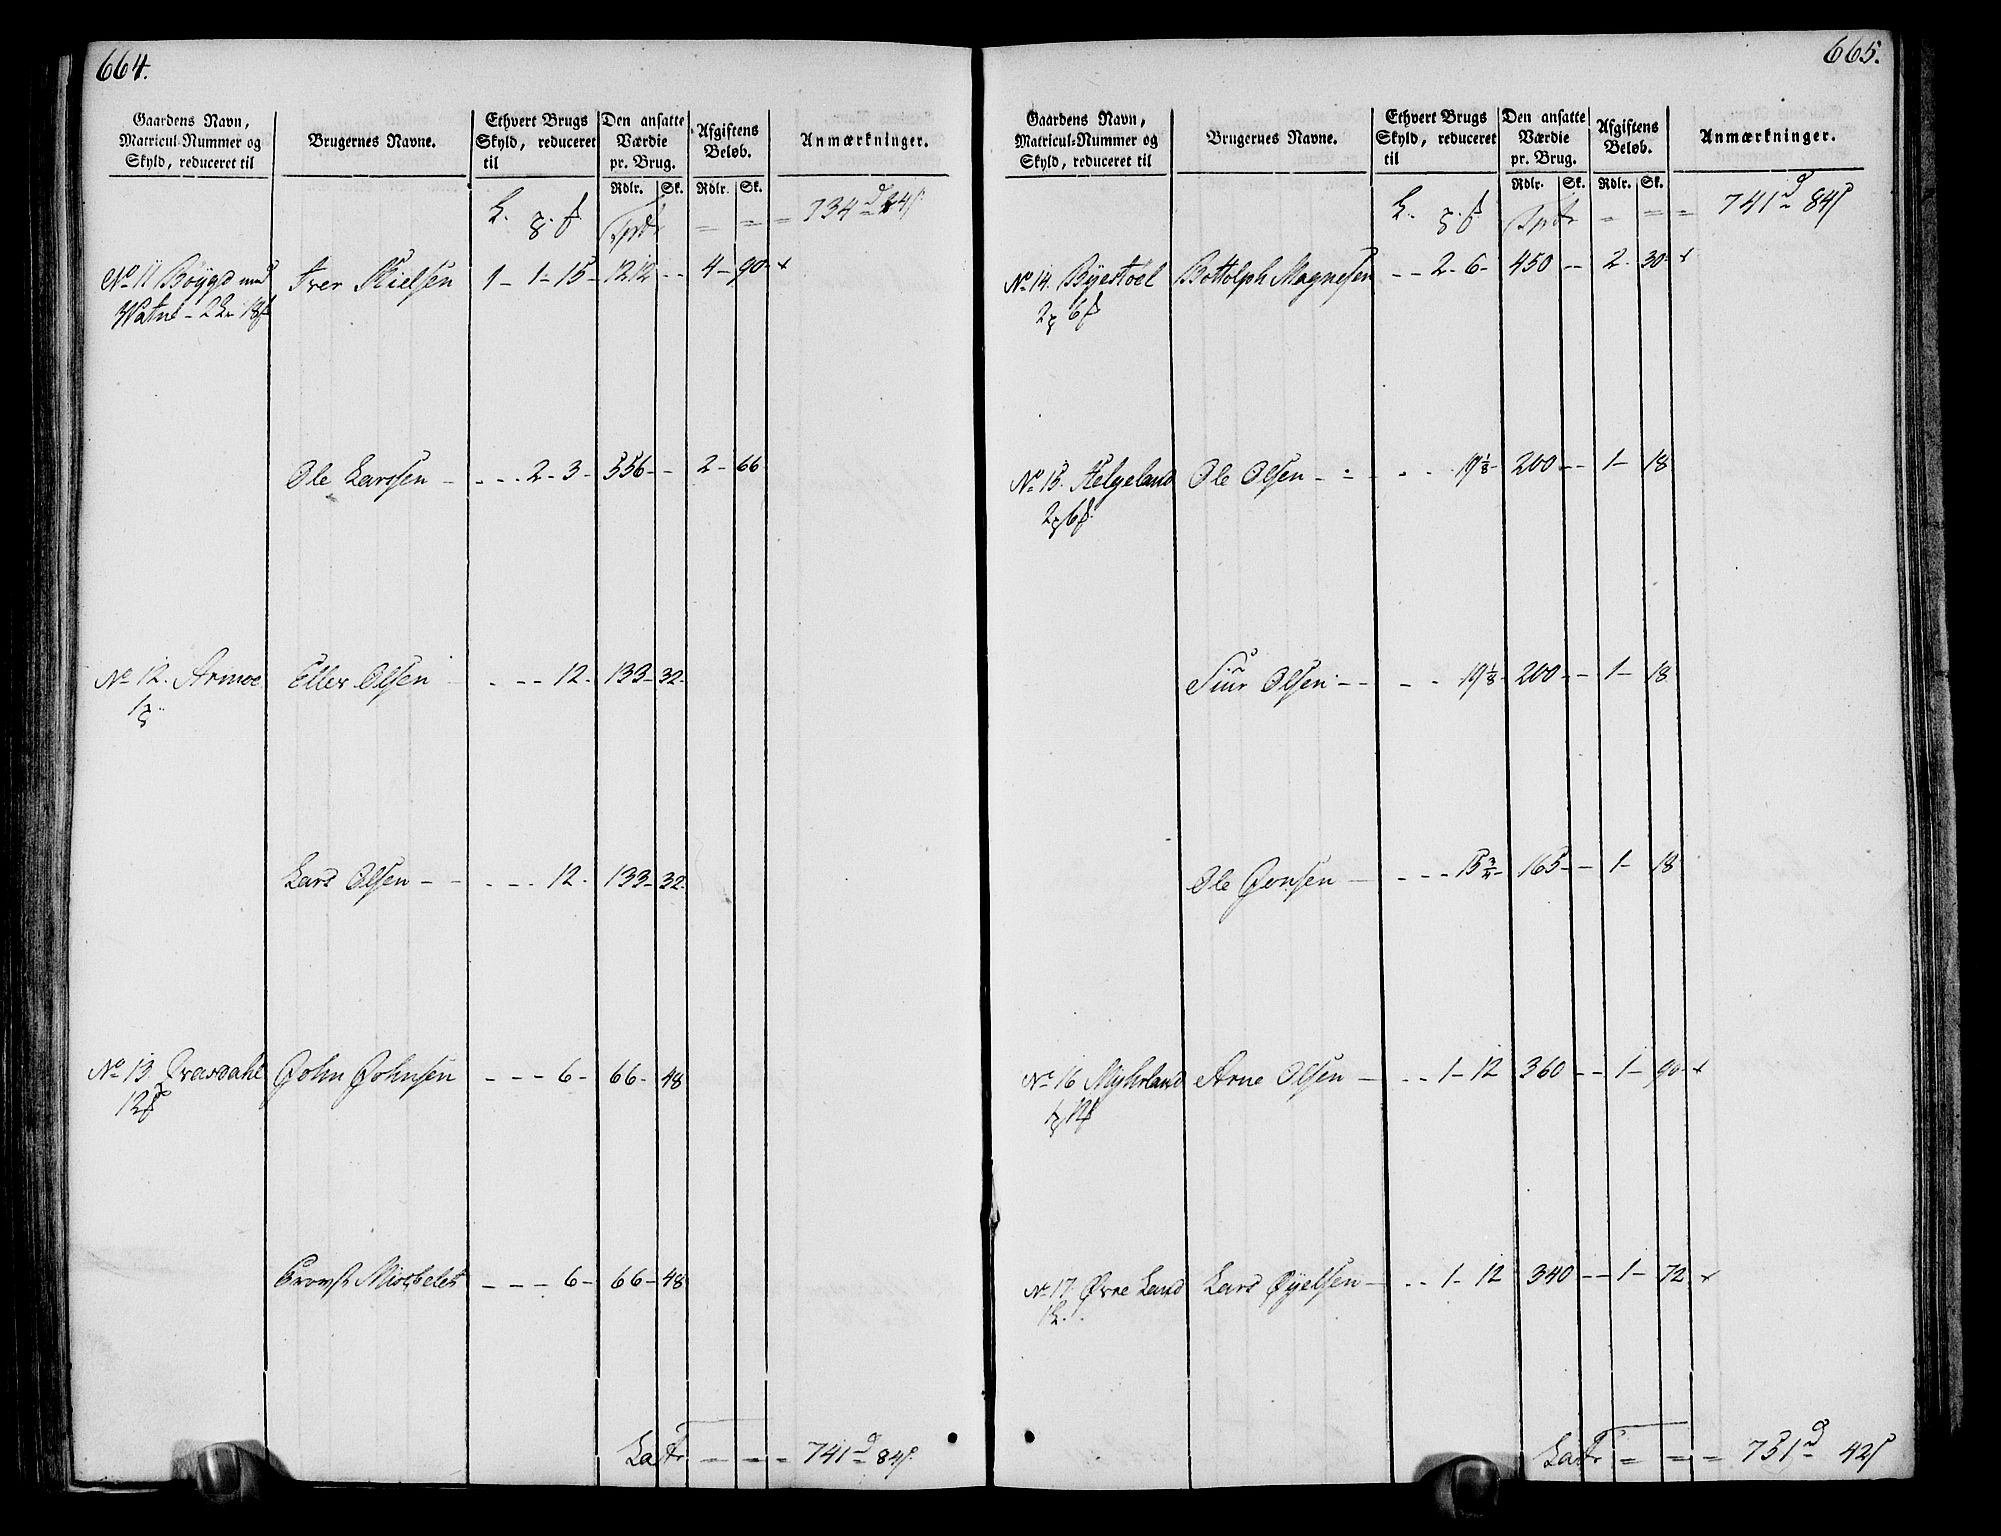 664.
Gaardens Navn, Matricul-Nummer og Skyld, reduceret til | Brugernes Navne. | Ethvert Brugs Skyld, reduceret til | Den ansatte Værdie pr. Brug. Rdlr. Sk. | Afgiftens Beløb. Rdlr. Sk. | Anmærkninger.
734 24
No 11 Bøygd med Iver Nielsen 1 - 1 - 15 - 1212 - - 4 - 90 - +
Watne - 2 18
Ole Larssen - - - - 2 - 3 - 556 - - 2 - 66
No 12. Armoe Eller Olsen - - - 12. 133 - 32.
1
Lars Olsen - - - - - 12. 133 - 32.
No 13 John Johnsen - - - 6 - 66 - 48
12
Provst Miocbelet - - - 6 - 66 - 48
Latr - - - - 741 84
665.
Gaardens Navn, Matricul-Nummer og Skyld, reduceret til | Brugernes Navne. | Ethvert Brugs Skyld, reduceret til | Den ansatte Værdie pr. Brug. Rdlr. Sk. | Afgiftens Beløb. Rdlr. Sk. | Anmærkninger.
741 84
No 14. Byestoel Bottolph Magnesen - - 2 - 6 - 450 - - 2 - 30 - +
2 6
No 15. Helgeland Ole Olsen - - - - 19 1/8 - 200 - - 1 - 18
2 6
Siur Olsen - - - - 19 1/8 - 200 - - 1 - 18
Ole Jonsen - - - - 15 3/4 - 165 - - 1 - 18
No 16 Myhrland Arne Olsen - - - 1 - 12 360 - - 1 - 90 - +
1 12
No 17. Øvre Land Lars Øyelsen - - - 1 - 12 340 - - 1 - 72 +
12.
Latr - - - 751 42